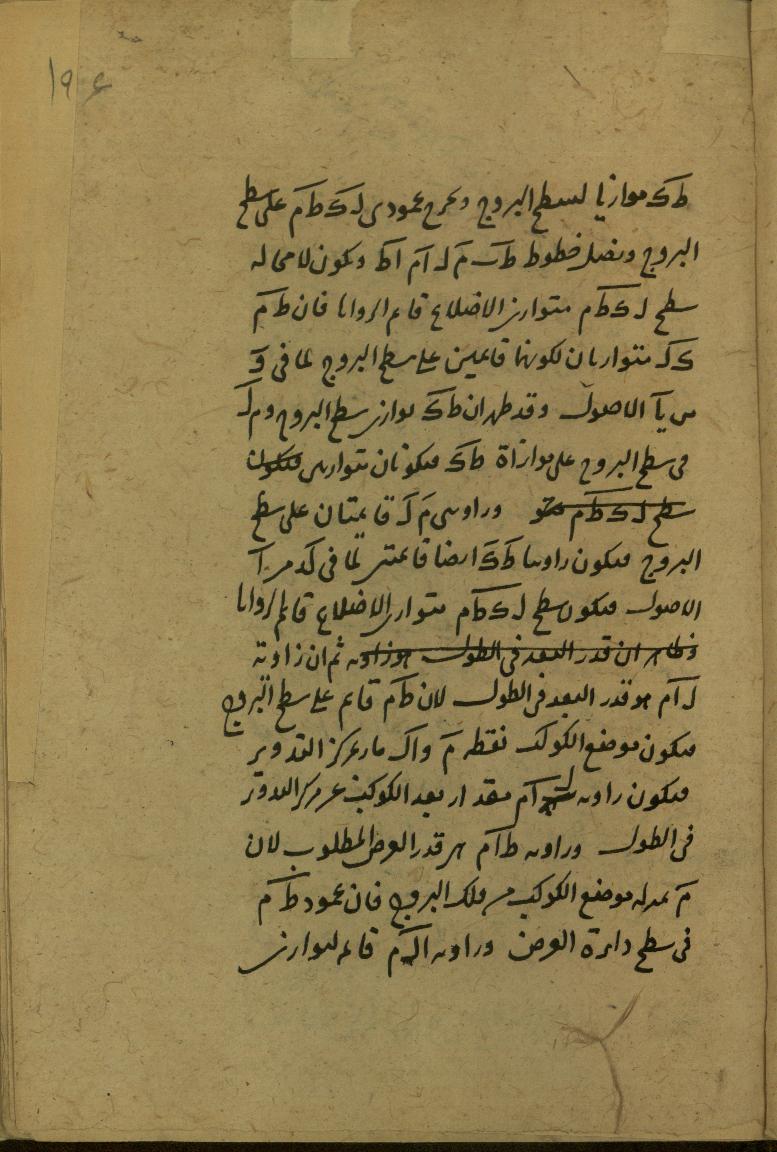 ١٩٤
ط ك موازيا لسطح البروج ونخرج عمودى ل ك ط م على سطح
البروج ونصل خطوط ط ب م ل ا م ا ط ويكون لا محاله
سطح ل ك ط م متوازى الاضلاع قائم الزوايا فان ط م
ك ل متوازيان لكونهما قائمين على سطح البروج لما فى و
من يا الاصول وقد ظهر ان ط ك يوازى سطح البروج و م ل
فى سطح البروج على موازاة ط ك فيكونان متوازيين فيكون
سطح ل ك ط م وزاويتى م ل قائمتان على سطح
البروج فيكون زاويتا ط ك ايضا قائمتين لما فى لد من ا
الاصول فيكون سطح ل ك ط م متوازى الاضلاع قائم الزوايا
وظاهر ان قدر البعد فى الطول هو زاويه ثم ان زاوية
ل ا م هو قدر البعد فى الطول لان ط م قائم على سطح البروج
فيكون موضع الكوكب نقطه م و ا ل مار بمركز التدوير
فيكون زاويه ل ا م مقدار بعد الكوكب عن مركز التدوير
فى الطول وزاويه ط ا م هى قدر العرض المطلوب لان
م بمنزله موضع الكوكب من فلك البروج فان عمود ط م
فى سطح دايرة العرض وزاويه ا ل م قائمه لتوازى